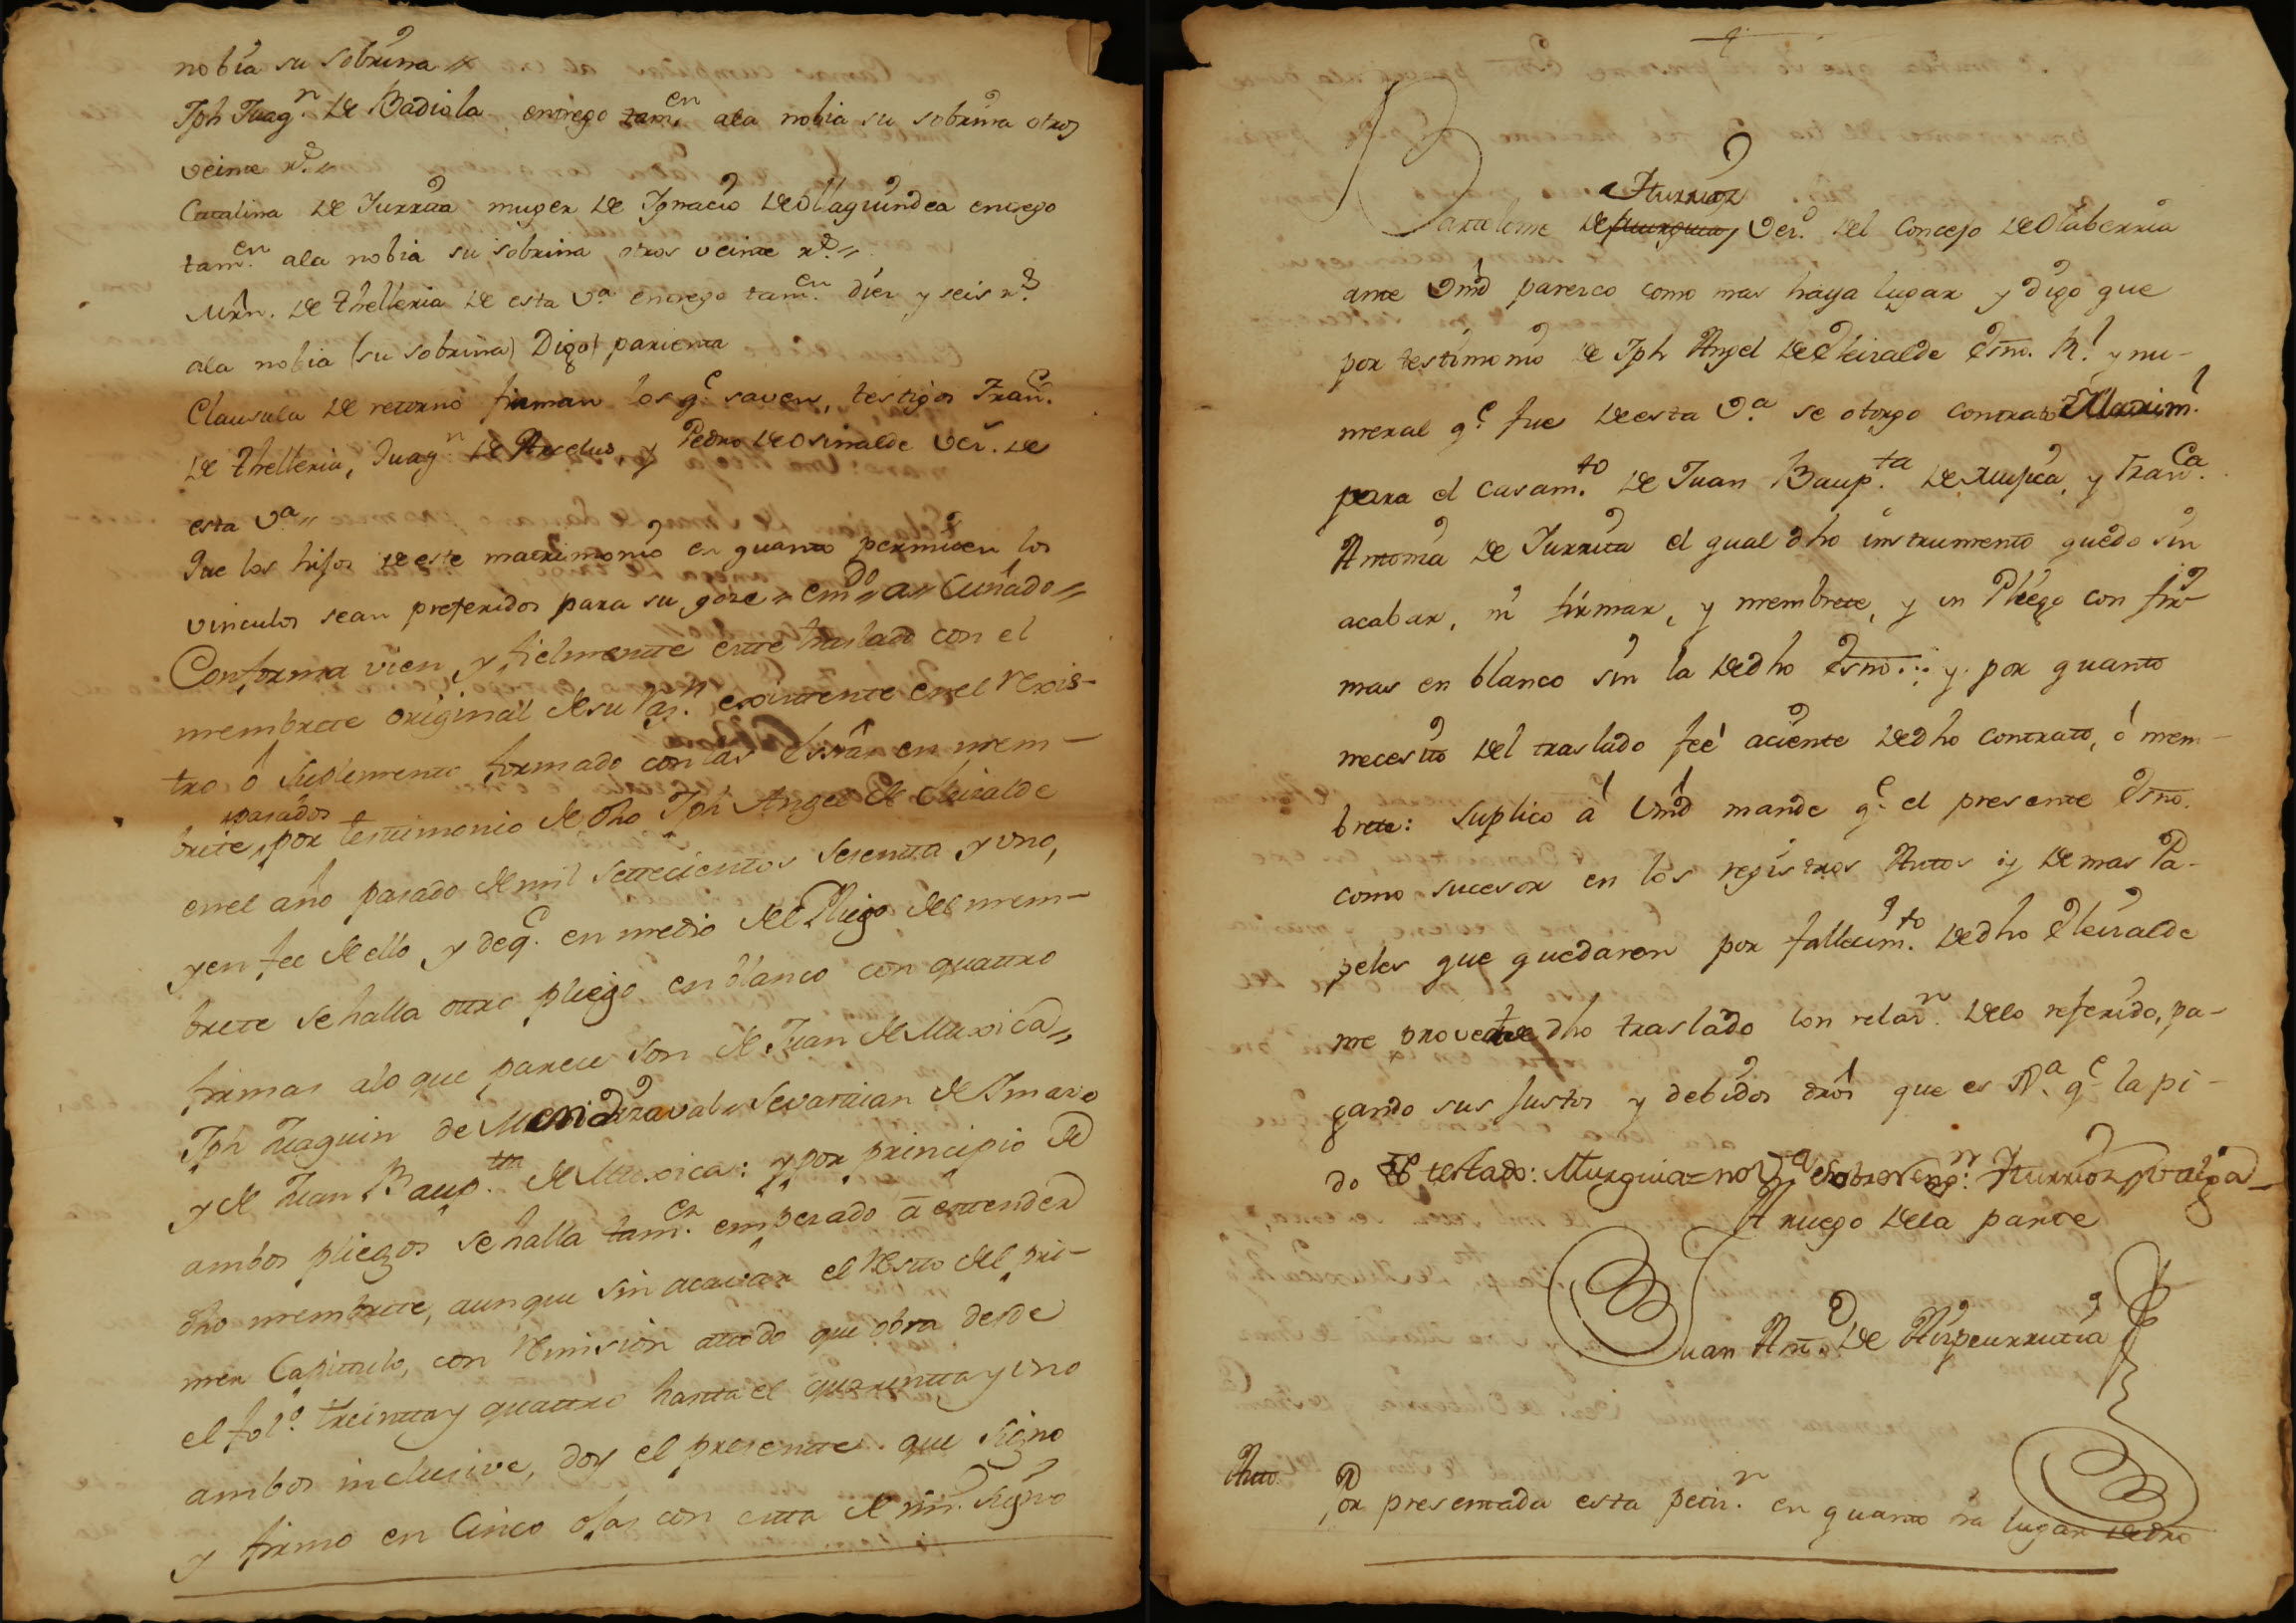 nobia su sobrina //
Jph Juaqn. de Badiola entrego tamen. ala nobia su sobrina otros
veinte rs. //
Catalina de Iurrita muger de Ignacio de Olaguindea entrego
tamen. ala nobia su sobrina otros veinte rs. //
Mrn. de Thelleria de esta Va. entrego tamen. diez y seis rs.
ala nobia (su sobrina) Digo) parienta
Clausula de retorno firman los qe. saven, testigos Franco.
de Thelleria, Juaqn. de Arcelus y Pedro de Osinalde vezs. de
esta Va. //
Que los hijos de este matrimonio en quanto permiten los
vinculos sean preferidos para su goze // emdo // a // Cuñado //
Conforma vien, y fielmente este traslado con el
membrete original de su razn. existente en el rexis-
tro ô suplemento formado con las Essras en mem-
brete, pasados por testimonio de dho Jph Angel de Eleizalde
en el año pasado de mil settecientos sesenta y uno,
y en fee de ello y de qe. en medio del Pliego del mem-
brete se halla otro pliego en blanco con quattro
firmas alo que parece son de Juan de Muxica //
Jph Juaquin de Mendizaval // Sevastian de Amaro
y de Juan Baupta. de Muxica: y por principio de
ambos pliegos se halla tamen. empezado ā estender
dho membrete, aunque sin acavar el resto del pri-
mer Capitulo, con remision attodo que obra desde
el folo. treinta y quattro hasta el quarenta y uno
ambos inclusive, doy el presente que signo
y firmo en Cinco ojas con esta de mi signo
Bartolome de Murguia Iturrioz Vezo. del Concejo de Olaberria
ante Vmd parezco como mas haya lugar y digo que
por testimonio de Jph Angel de Eleizalde Esno. Rl. y nu-
meral qe. fue de esta Va. se otorgo contrato Matriml.
para el casamto. de Juan Baupta. de Mujica, y Franca.
Antonia de Iurrita el qual dho instrumento quedo sin
acabar, ni firmar, y membrete, y un Pliego con fir-
mas en blanco sin la de dho Esno. y por quanto
necesito del traslado feé aciente de dho contrato, ó mem-
brete: Suplico á Vmd mande qe. el presente Esno.
como sucesor en los registros Autos y demas Pa-
peles que quedaron por fallecimto. de dho Eleizalde
me provea de dho traslado con relazn. delo referido, pa-
gando sus justos y debidos dros que es Jª. qe. la pi-
do testado: Murguia = no Va. sobre rengn. Iturrioz Valga
A ruego dela parte
Juan Anto. de Aizpeurrutia
Auto. Por presentada esta petizn. en quanto ha lugar de dro